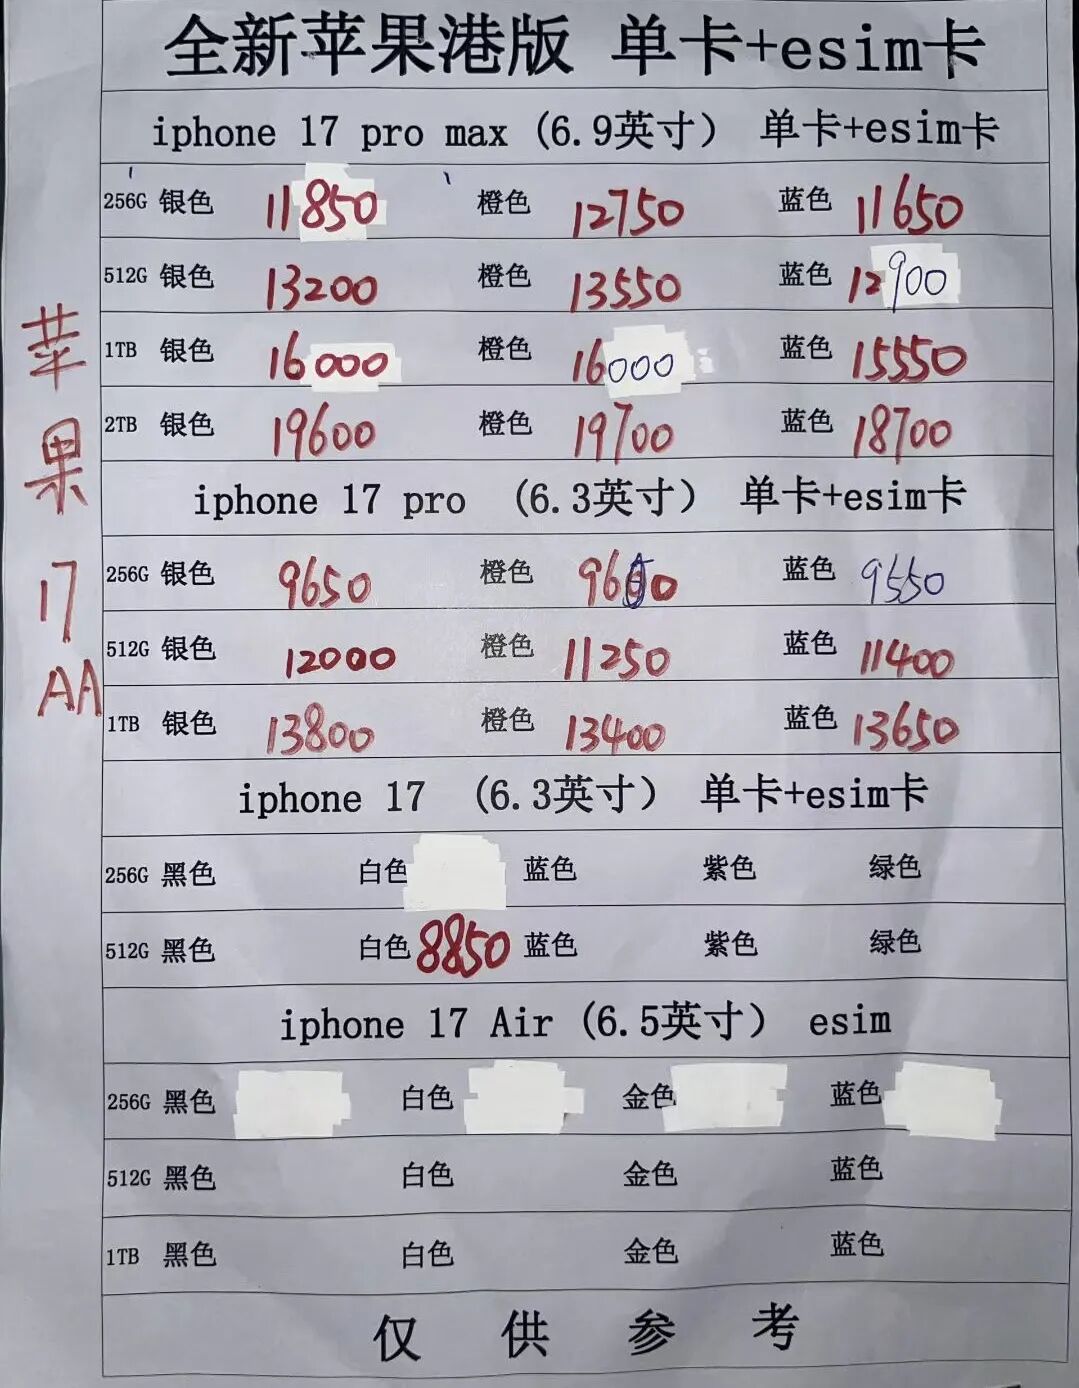 全新苹果港版 单卡+esim卡
iphone 17 pro max (6.9英寸) 单卡+esim卡
256G 银色 11850 橙色 12750 蓝色 11650
512G 银色 13200 橙色 13550 蓝色 12900
1TB 银色 16000 橙色 16000 蓝色 15550
2TB 银色 19600 橙色 19700 蓝色 18700
iphone 17 pro (6.3英寸) 单卡+esim卡
256G 银色 9650 橙色 蓝色 9550
512G 银色 12000 橙色 11250 蓝色 11400
1TB 银色 13800 橙色 13400 蓝色 13650
iphone 17 (6.3英寸) 单卡+esim卡
256G 黑色 白色 蓝色 紫色 绿色
512G 黑色 白色 8850 蓝色 紫色 绿色
iphone 17 Air (6.5英寸) esim
256G 黑色 白色 金色 蓝色
512G 黑色 白色 金色 蓝色
1TB 黑色 白色 金色 蓝色
仅供参考
苹
果
17
AA